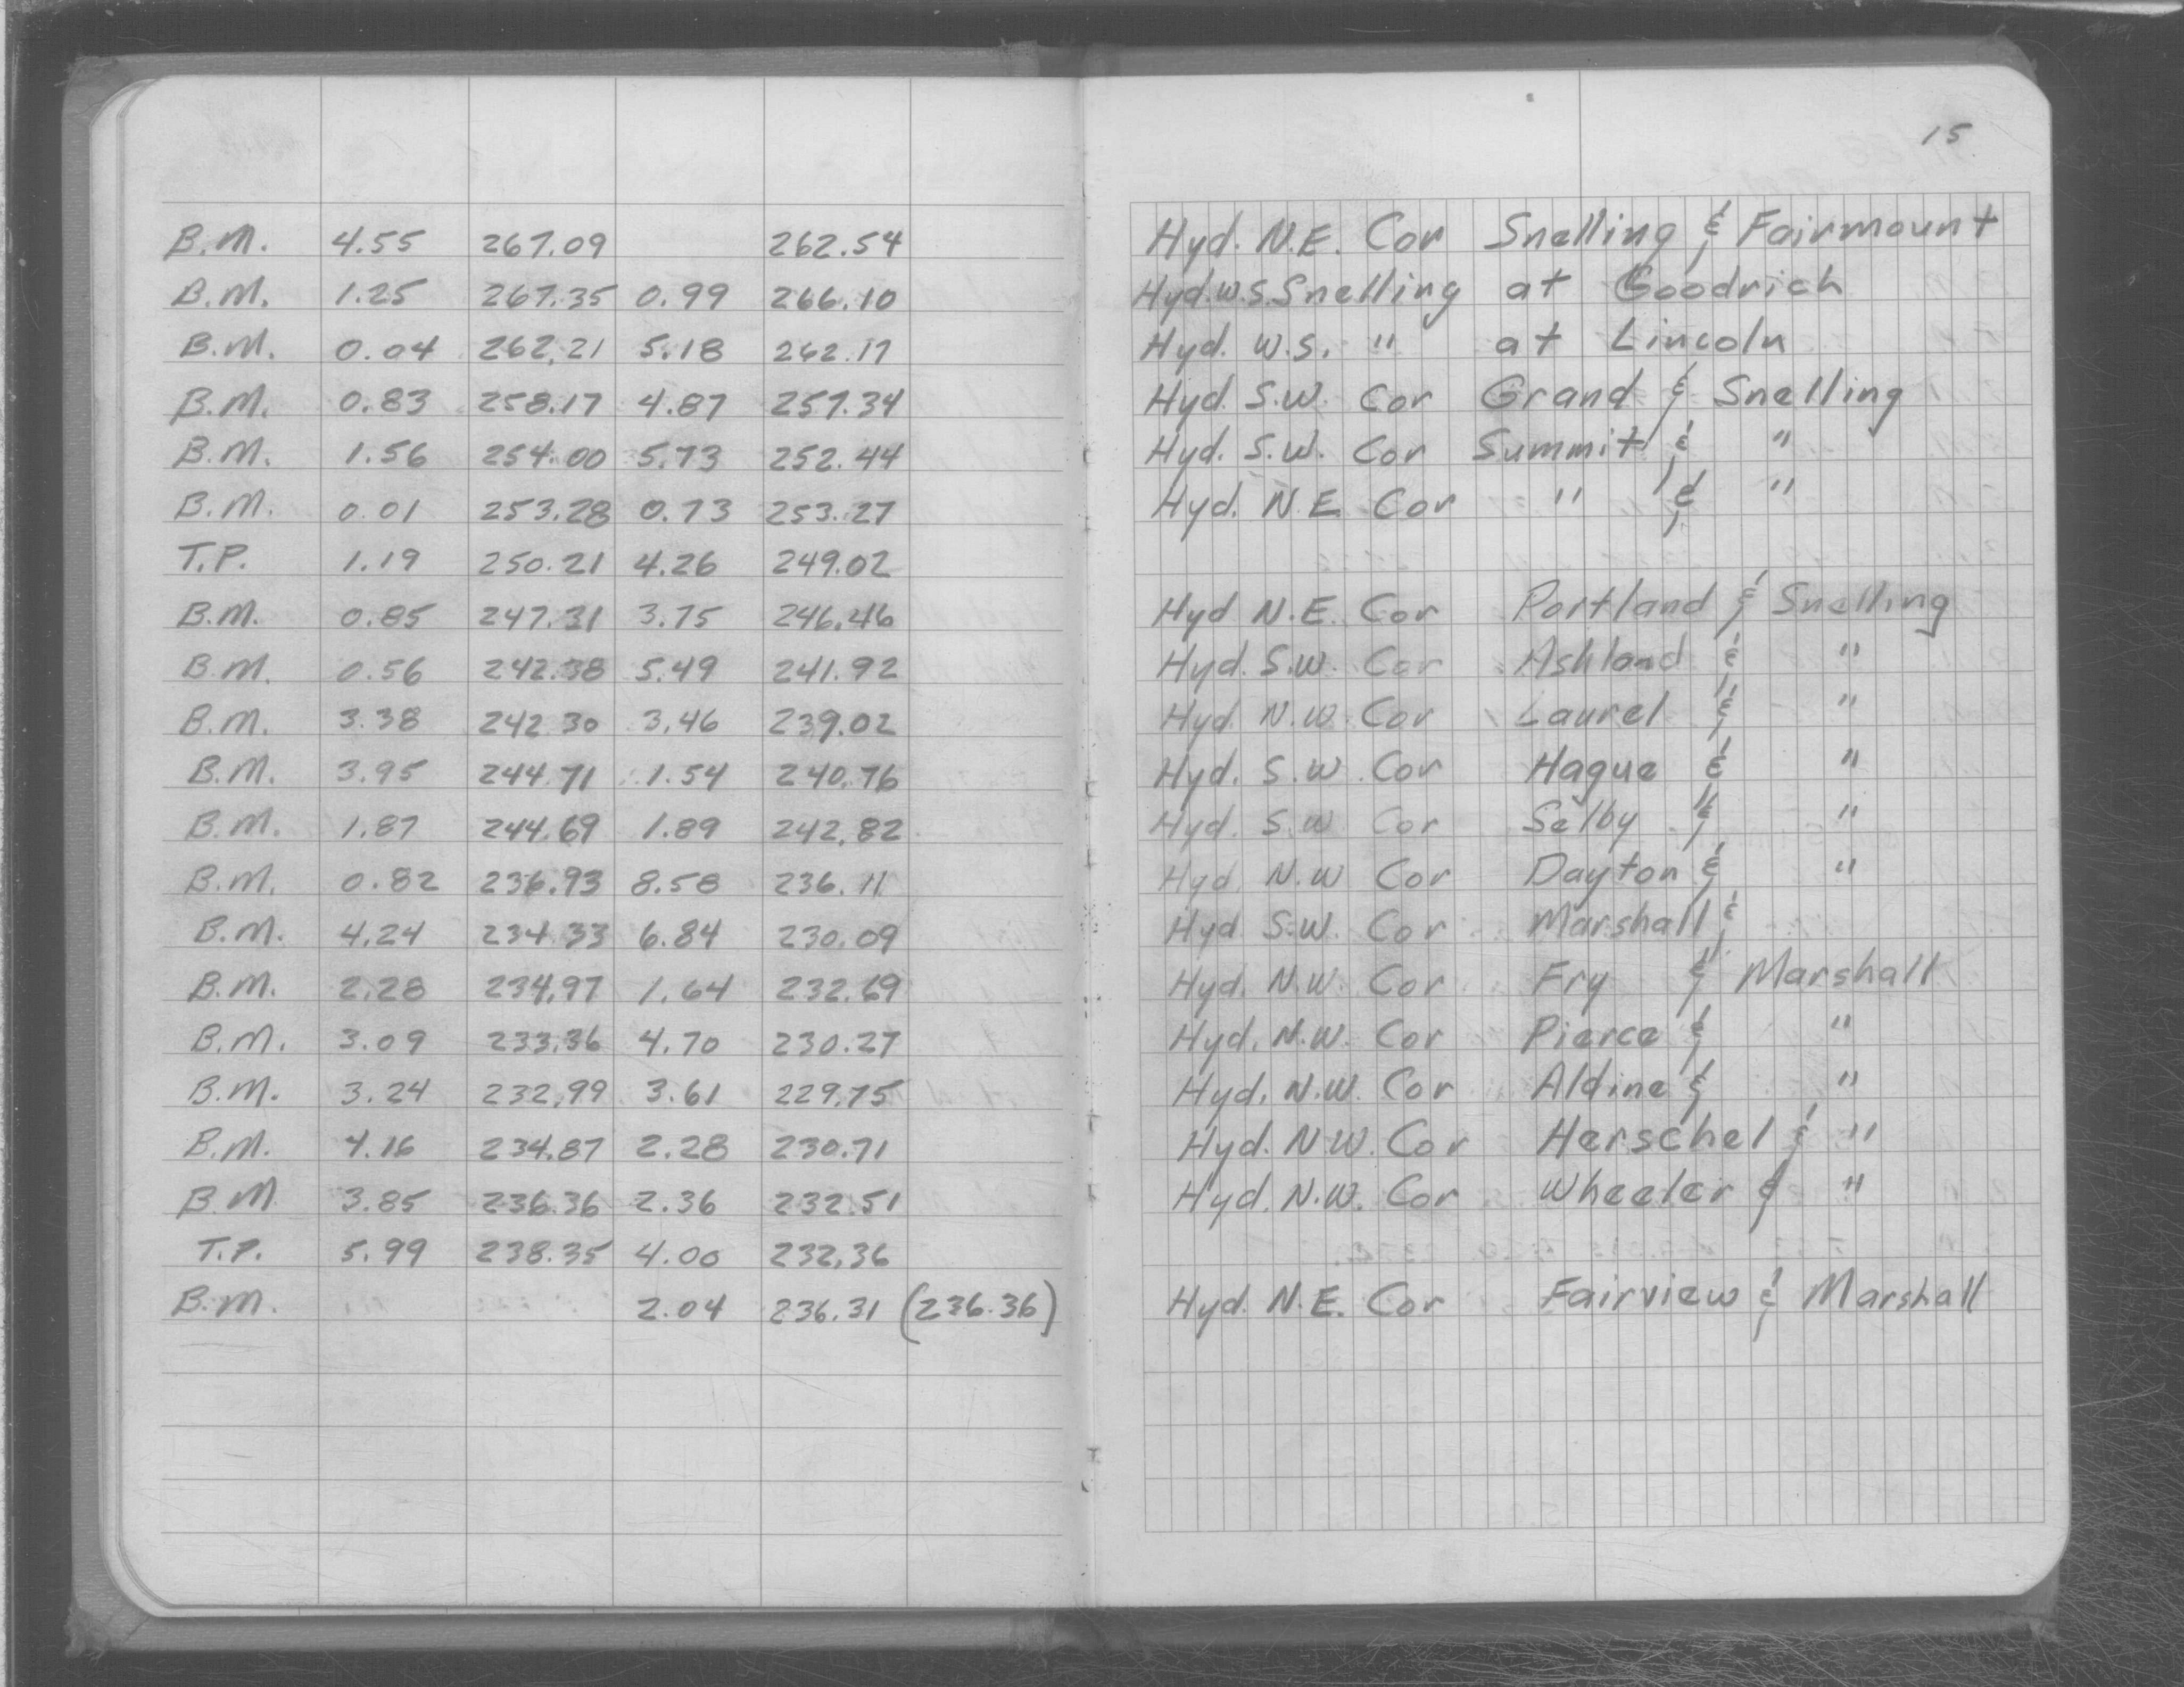 15
B.M. 4.55 267.09 262.54 Hyd. N.E. Cor Snelling & Fairmount
B.M. 1.25 267.35 0.99 266.10 Hyd. w.s. Snelling at Goodrich
B.M. 0.04 262.21 5.18 262.17 Hyd. W.S. " at Lincoln
B.M. 0.83 258.17 4.87 257.34 Hyd. S.W. Cor Grand & Snelling
B.M. 1.56 254.00 5.73 252.44 Hyd. S.W. Cor Summit & "
B.M. 0.01 253.28 0.73 253.27 Hyd. N.E. Cor " & "
T.P. 1.19 250.21 4.26 249.02
B.M. 0.85 247.31 3.75 246.46 Hyd N.E. Cor Portland & Snelling
B.M. 0.56 242.38 5.49 241.92 Hyd. S.W. Cor Ashland & "
B.M. 3.38 242.30 3.46 239.02 Hyd. N.W. Cor Laurel & "
B.M. 3.95 244.71 1.54 240.76 Hyd. S.W. Cor Hague & "
B.M. 1.87 244.69 1.89 242.82 Hyd. S.W Cor Selby & "
B.M. 0.82 236.93 8.58 236.11 Hyd. N.W Cor Dayton & "
B.M. 4.24 234.33 6.84 230.09 Hyd S.W. Cor Marshall &
B.M. 2.28 234.97 1.64 232.69 Hyd. N.W. Cor Fry & Marshall
B.M. 3.09 233.36 4.70 230.27 Hyd. N.W. Cor Pierce & "
B.M. 3.24 232.99 3.61 229.75 Hyd. N.W. Cor Aldine & "
B.M. 4.16 234.87 2.28 230.71 Hyd. N.W. Cor Herschel & "
B.M 3.85 236.36 2.36 232.51 Hyd. N.W. Cor Wheeler & "
T.P. 5.99 238.35 4.00 232.36
B.M. 2.04 236.31 (236.36) Hyd. N.E. Cor Fairview & Marshall